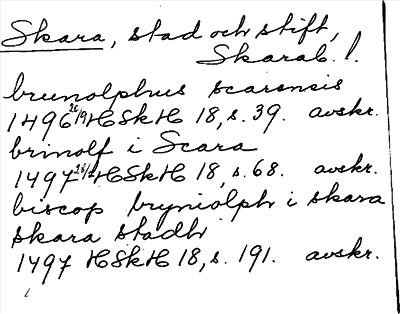 Skara, stad och stift,
Skarab. l.
brunolphus scarensis
1496 26/9 HSkH 18, s. 39. avskr.
brinolf i Scara
1497 HSkH 18, s. 68. avskr.
biscop bryniolph i skara
skara stadh
1497 HSkH 18, s. 191. avskr.